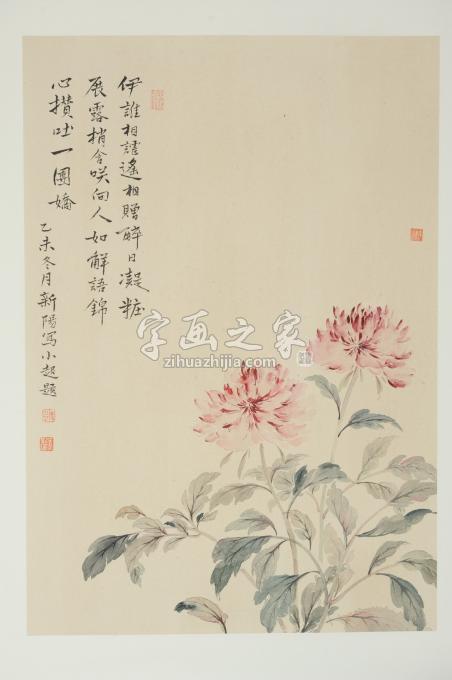 伊誰相謔遙相贈醉日凝粧
展露梢含咲向人如解語錦
心攢吐一團嬌
乙未冬月新陽寫小起題
字画之家
zihuazhijia.com